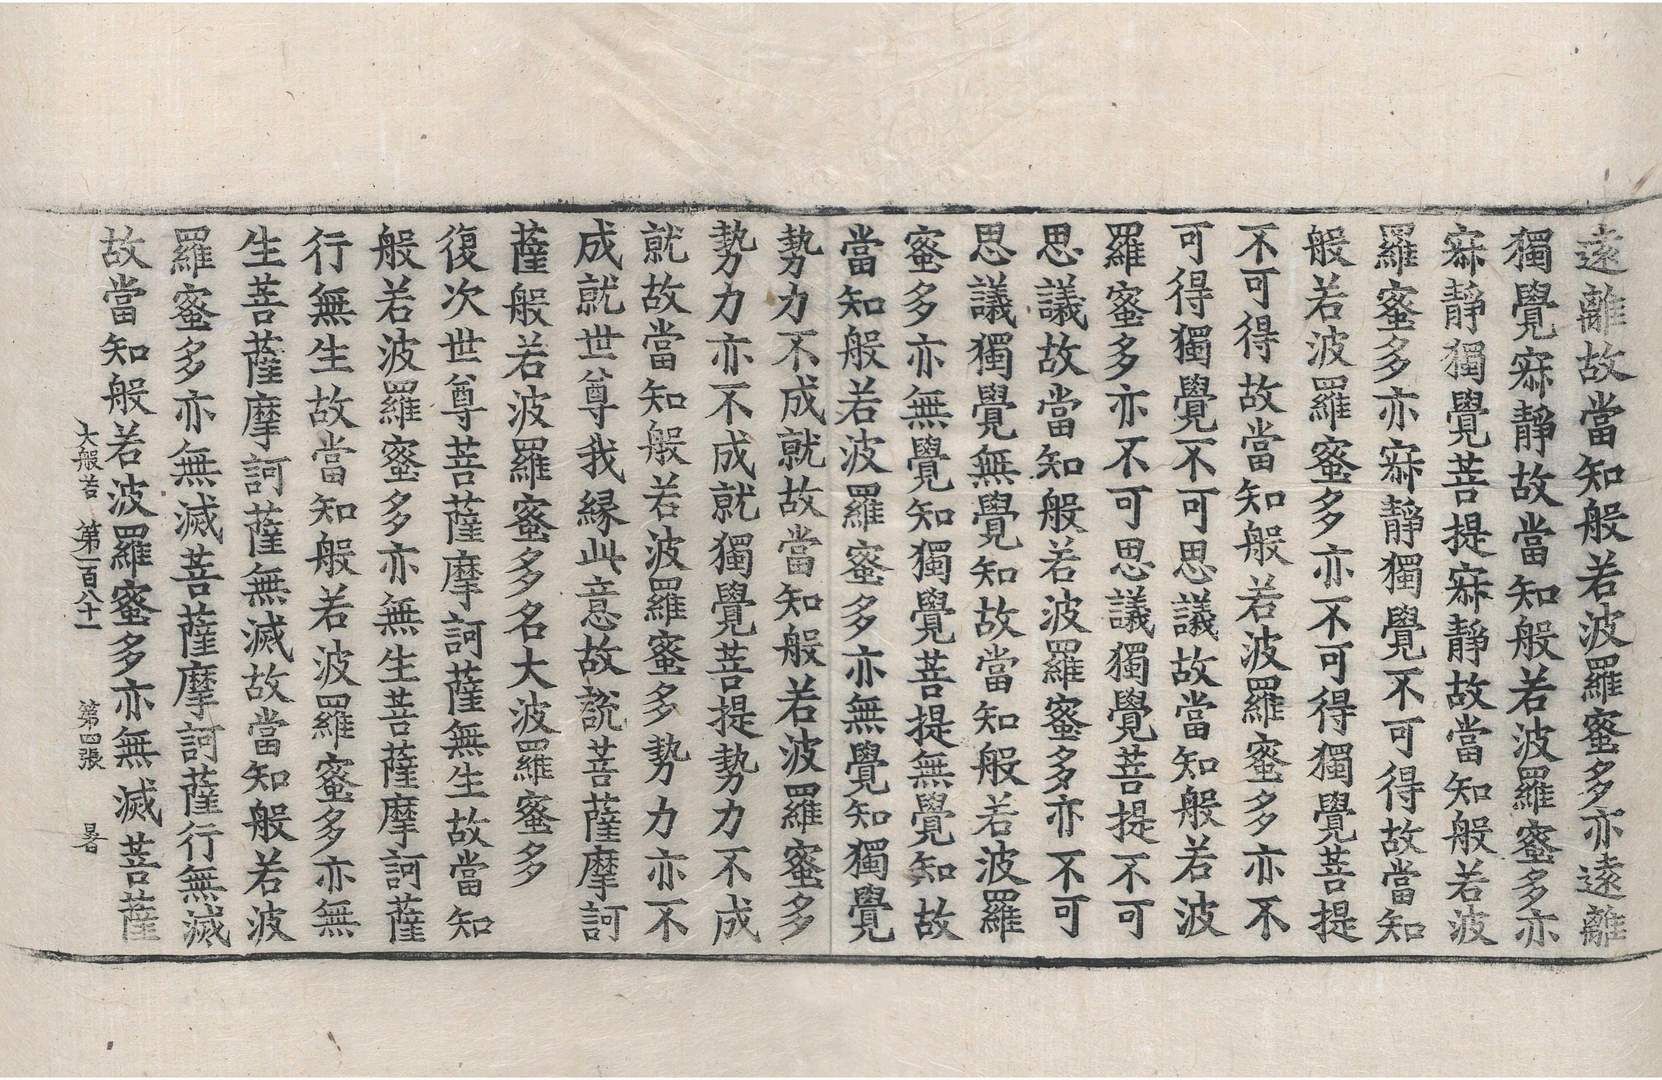 遠離故當知般若波羅蜜多亦遠離
獨覺寂靜故當知般若波羅蜜多亦
寂靜獨覺菩提寂靜故當知般若波
羅蜜多亦寂靜獨覺不可得故當知
般若波羅蜜多亦不可得獨覺菩提
不可得故當知般若波羅蜜多亦不
可得獨覺不可思議故當知般若波
羅蜜多亦不可思議獨覺菩提不可
思議故當知般若波羅蜜多亦不可
思議獨覺無覺知故當知般若波羅
蜜多亦無覺知獨覺菩提無覺知故
當知般若波羅蜜多亦無覺知獨覺
勢力不成就故當知般若波羅蜜多
勢力亦不成就獨覺菩提勢力不成
就故當知般若波羅蜜多勢力亦不
成就世尊我緣此意故說菩薩摩訶
薩般若波羅蜜多名大波羅蜜多
復次世尊菩薩摩訶薩無生故當知
般若波羅蜜多亦無生菩薩摩訶薩
行無生故當知般若波羅蜜多亦無
生菩薩摩訶薩無滅故當知般若波
羅蜜多亦無滅菩薩摩訶薩行無滅
故當知般若波羅蜜多亦無滅菩薩
大般若 第一百八十一 第四張 暑